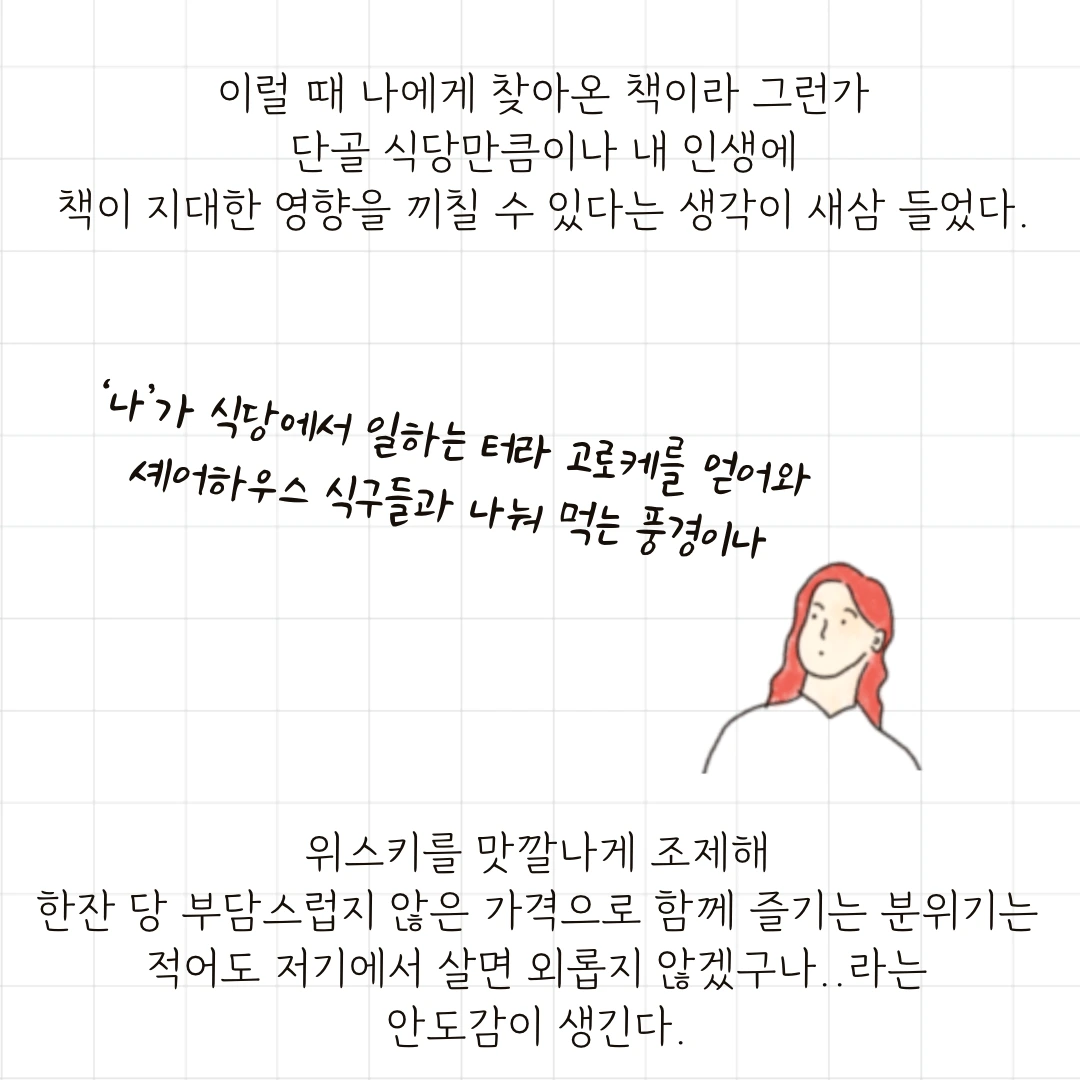 이럴 때 나에게 찾아온 책이라 그런가
단골 식당만큼이나 내 인생에
책이 지대한 영향을 끼칠 수 있다는 생각이 새삼 들었다.
‘나’가 식당에서 일하는 터라 고로케를 얻어와
셰어하우스 식구들과 나눠 먹는 풍경이나
위스키를 맛깔나게 조제해
한잔 당 부담스럽지 않은 가격으로 함께 즐기는 분위기는
적어도 저기에서 살면 외롭지 않겠구나..라는
안도감이 생긴다.